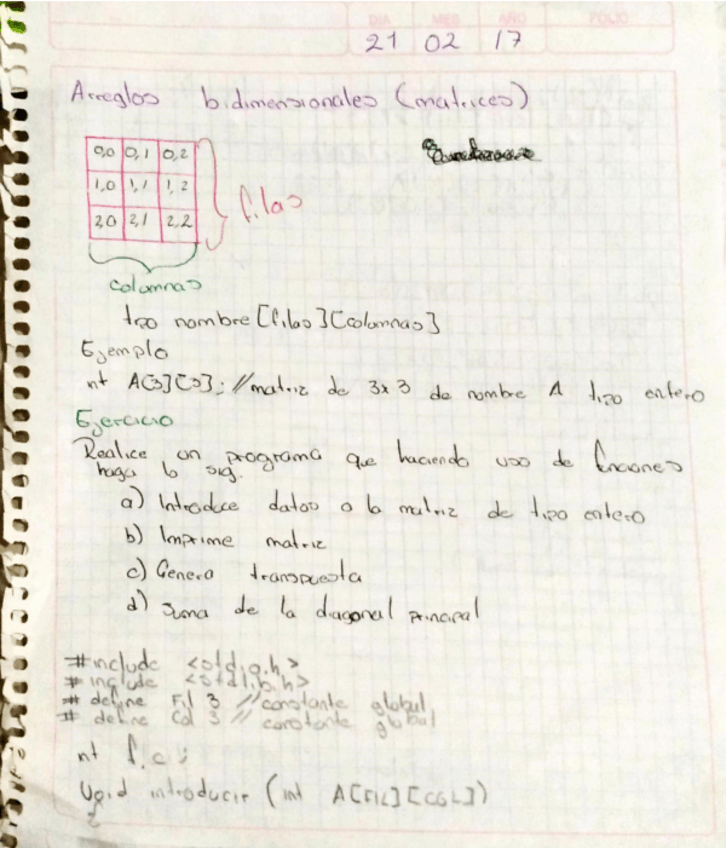 DIA MES AÑO FOLIO
21 02 17
Arreglos bidimensionales (matrices)
0,0 0,1 0,2
1,0 1,1 1,2
2,0 2,1 2,2
filas
columnas
tipo nombre [filas][columnas]
Ejemplo
int A[3][3]; // matriz de 3x3 de nombre A tipo entero
Ejercicio
Realice un programa que haciendo uso de funciones
haga lo sig.
a) Introduce datos a la matriz de tipo entero
b) Imprime matriz
c) Genera transpuesta
d) Suma de la diagonal principal
#include <stdio.h>
#include <stdlib.h>
# define Fil 3 // constante global
# define Col 3 // constante global
int f,c;
Void introducir (int A[FIL][COL])
{